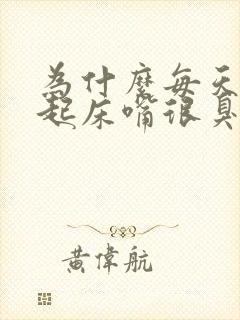 為什麼每天
起床嘴很臭
黃偉航